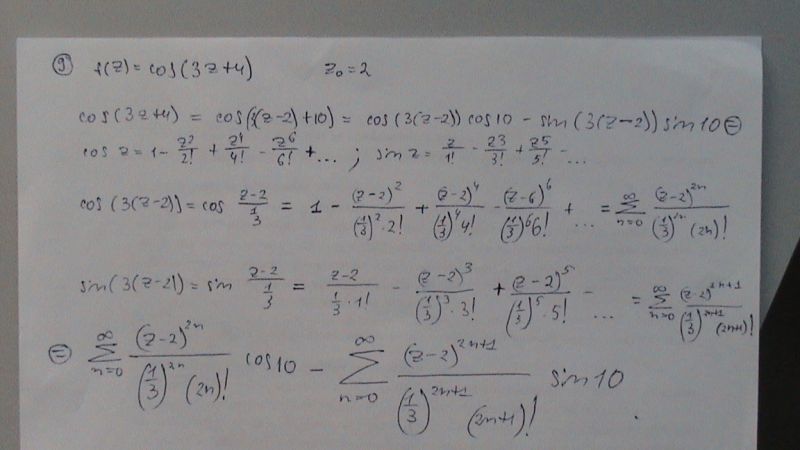 9 f(z) = cos(3z+4) z₀=2
cos(3z+4) = cos(3(z-2)+10) = cos(3(z-2)) cos10 - sin(3(z-2)) sin10 ⊜
cos z = 1 - z²/2! + z⁴/4! - z⁶/6! + ... ; sin z = z/1! - z³/3! + z⁵/5! - ...
cos(3(z-2)) = cos (z-2)/(1/3) = 1 - (z-2)²/((1/3)²·2!) + (z-2)⁴/((1/3)⁴4!) - (z-6)⁶/((1/3)⁶6!) + ... = ∑_{n=0}^{∞} (z-2)²ⁿ/((1/3)²ⁿ(2n)!)
sin(3(z-2)) = sin (z-2)/(1/3) = (z-2)/(1/3·1!) - (z-2)³/((1/3)³·3!) + (z-2)⁵/((1/3)⁵·5!) - ... = ∑_{n=0}^{∞} (z-2)²ⁿ⁺¹/((1/3)²ⁿ⁺¹(2n+1)!)
⊜ ∑_{n=0}^{∞} (z-2)²ⁿ/((1/3)²ⁿ(2n)!) cos10 - ∑_{n=0}^{∞} (z-2)²ⁿ⁺¹/((1/3)²ⁿ⁺¹(2n+1)!) sin10 .